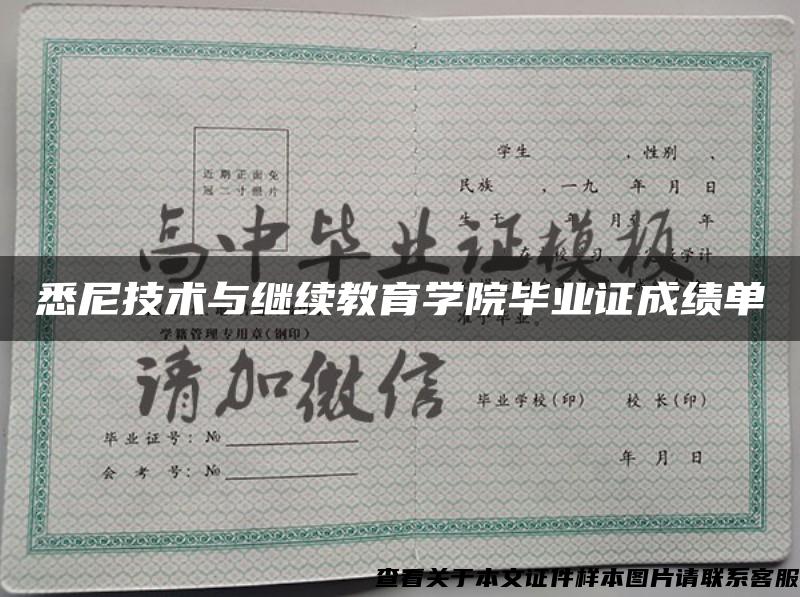 学生 ，性别 、
近期正面免
冠二寸照片
民族 ，一九 年 月 日
高中毕业证模板
悉尼技术与继续教育学院毕业证成绩单
准予毕业。
学籍管理专用章(钢印)
请加微信
毕业学校(印) 校 长(印)
毕业证号：№
会 考 号：№
年 月 日
查看关于本文证件样本图片请联系客服